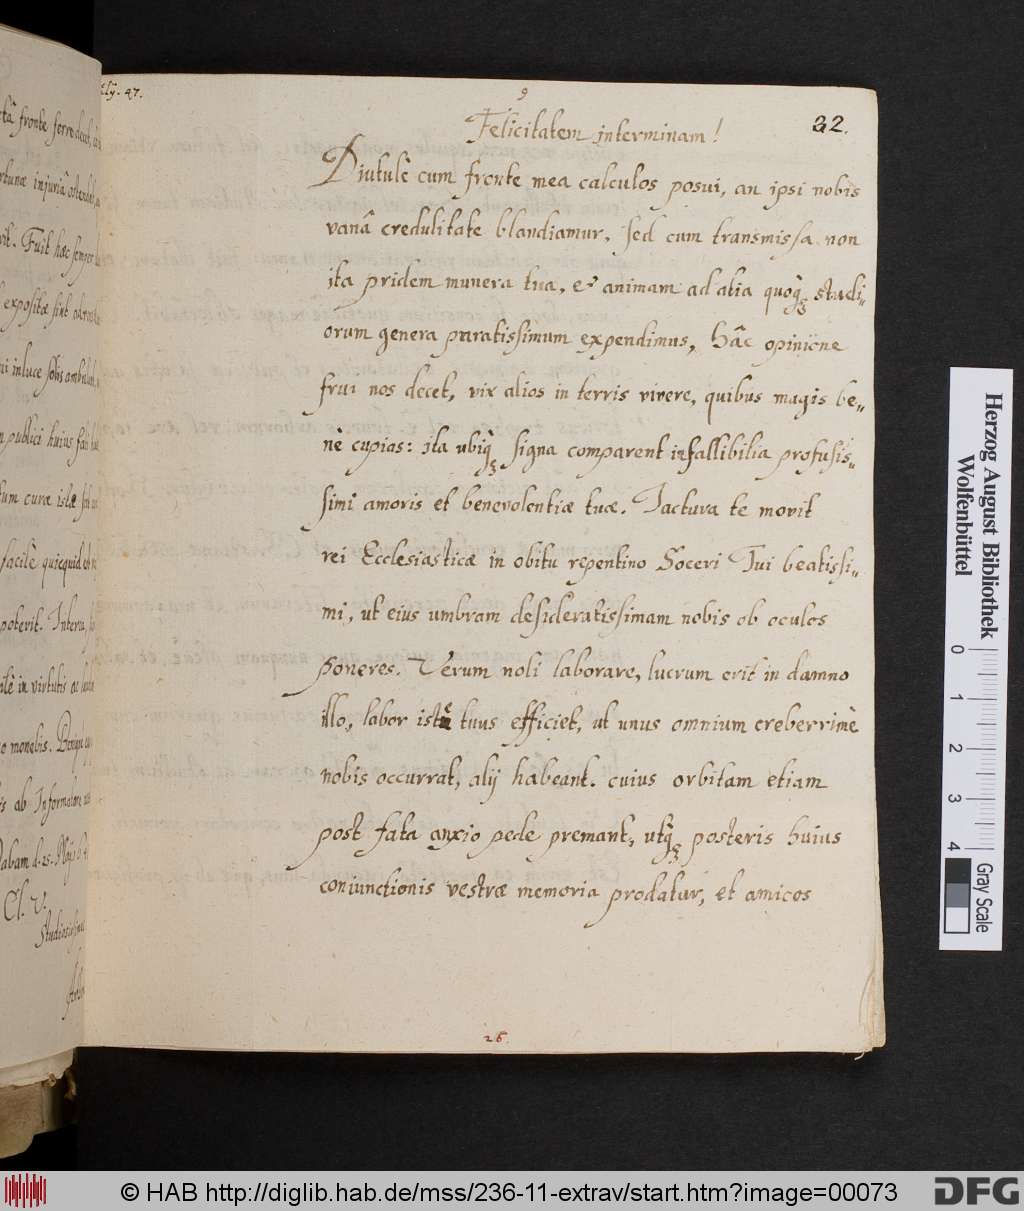 9
32.
Felicitatem interminam!
Diutulè cum fronte mea calculos posui, an ipsi nobis
vanâ credulitate blandiamur. Sed cum transmissa non
ita pridem munera tua, et animam ad alia quoq; studi„
orum genera paratissimum expendimus, hâc opinione
frui nos decet, vix alios in terris vivere, quibus magis be„
nè cupias: ita ubiq; signa comparent infallibilia profusis„
simi amoris et benevolentiæ tuæ. Iactura te movit
rei Ecclesiasticæ in obitu repentino Soceri Tui beatissi„
mi, ut eius umbram desideratissimam nobis ob oculos
poneres. Verum noli laborare, lucrum erit in damno
illo, labor tuus efficiet, ut unus omnium creberrimè
nobis occurrat, alij habeant. cuius orbitam etiam
post fata anxio pede premant, utq; posteris huius
coniunctionis vestræ memoria prodatur, et amicos
26.
tâ fronte ferre
rtunæ injuriâ
vit. Fuit hæc semper
expositæ sint
in luce solis
publici huius
tum curæ istæ
facilè quicquid
poterit.
in virtutis ac
monebis. Denique
is ab Informatore
Dabam d. 25. Maij
Cl. V.
Herzog August Bibliothek
Wolfenbüttel
0 1 2 3 4
Gray Scale
© HAB http://diglib.hab.de/mss/236-11-extrav/start.htm?image=00073
DFG